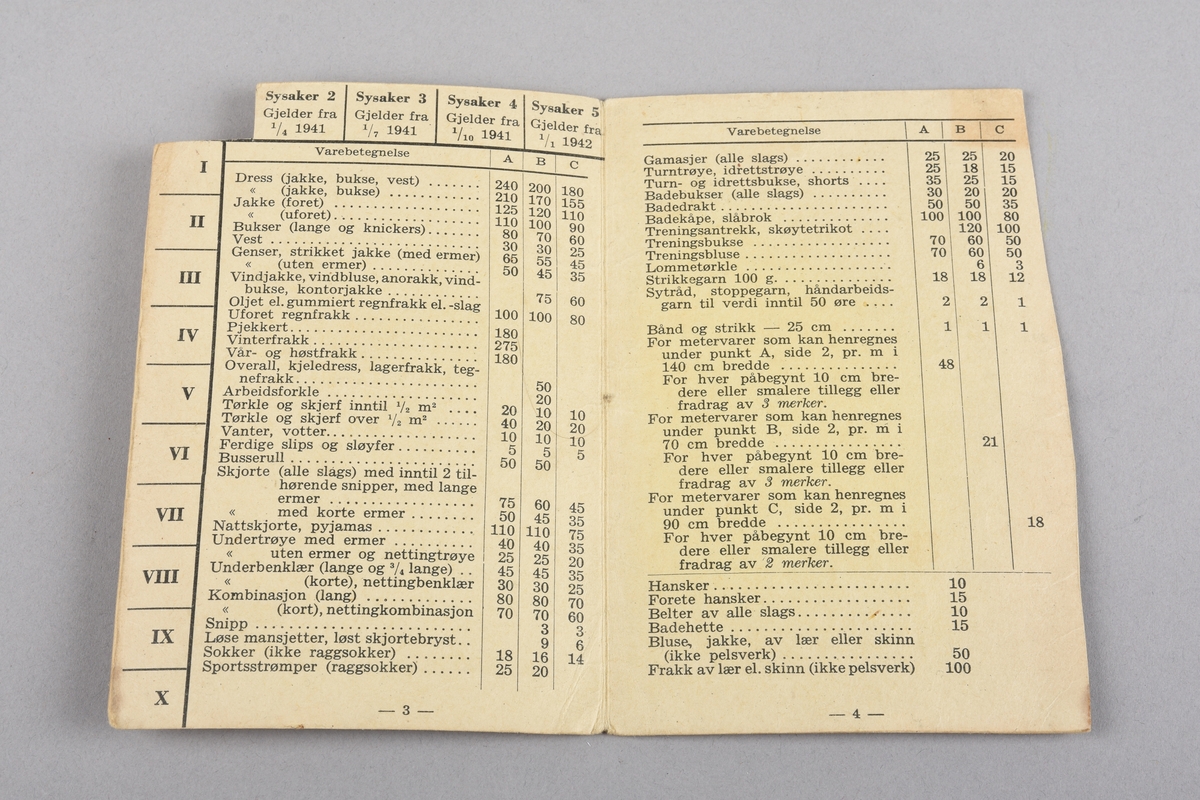 Sysaker 2 Sysaker 3 Sysaker 4 Sysaker 5
Gjelder fra Gjelder fra Gjelder fra Gjelder fra
1/4 1941 1/7 1941 1/10 1941 1/1 1942
I
II
III
IV
V
VI
VII
VIII
IX
X
Varebetegnelse A B C
Dress (jakke, bukse, vest) ....... 240 200 180
« (jakke, bukse) ............ 210 170 155
Jakke (foret) .................... 125 120 110
« (uforet).................. 110 100 90
Bukser (lange og knickers)....... 80 70 60
Vest ........................... 30 30 25
Genser, strikket jakke (med ermer) 65 55 45
« (uten ermer) ............ 50 45 35
Vindjakke, vindbluse, anorakk, vind-
bukse, kontorjakke ............ 75 60
Oljet el. gummiert regnfrakk el. -slag 100 100 80
Uforet regnfrakk ................
Pjekkert........................ 180
Vinterfrakk .................... 275
Vår- og høstfrakk ............... 180
Overall, kjeledress, lagerfrakk, teg-
nefrakk........................ 50
Arbeidsforkle ................... 20
Tørkle og skjerf inntil 1/2 m² .... 20 10 10
Tørkle og skjerf over 1/2 m² ...... 40 20 20
Vanter, votter................... 10 10 10
Ferdige slips og sløyfer.......... 5 5 5
Busserull ....................... 50 50
Skjorte (alle slags) med inntil 2 til-
hørende snipper, med lange
ermer .................. 75 60 45
« med korte ermer ........ 50 45 35
Nattskjorte, pyjamas ............ 110 110 75
Undertrøye med ermer .......... 40 40 35
« uten ermer og nettingtrøye 25 25 20
Underbenklær (lange og 3/4 lange) .. 45 45 35
« (korte), nettingbenklær 30 30 25
Kombinasjon (lang) ............. 80 80 70
« (kort), nettingkombinasjon 70 70 60
Snipp .......................... 3 3
Løse mansjetter, løst skjortebryst.. 9 6
Sokker (ikke raggsokker) ........ 18 16 14
Sportsstrømper (raggsokker) ...... 25 20
— 3 —
Varebetegnelse A B C
Gamasjer (alle slags) ............ 25 25 20
Turntrøye, idrettstrøye ........... 25 18 15
Turn- og idrettsbukse, shorts .... 35 25 15
Badebukser (alle slags) .......... 30 20 20
Badedrakt ...................... 50 50 35
Badekåpe, slåbrok .............. 100 100 80
Treningsantrekk, skøytetrikot .... 120 100
Treningsbukse .................. 70 60 50
Treningsbluse .................. 70 60 50
Lommetørkle ................... 6 3
Strikkegarn 100 g. .............. 18 18 12
Sytråd, stoppegarn, håndarbeids-
garn til verdi inntil 50 øre .... 2 2 1
Bånd og strikk — 25 cm ....... 1 1 1
For metervarer som kan henregnes
under punkt A, side 2, pr. m i
140 cm bredde ............... 48
For hver påbegynt 10 cm bre-
dere eller smalere tillegg eller
fradrag av 3 merker.
For metervarer som kan henregnes
under punkt B, side 2, pr. m i
70 cm bredde ................ 21
For hver påbegynt 10 cm bre-
dere eller smalere tillegg eller
fradrag av 3 merker.
For metervarer som kan henregnes
under punkt C, side 2, pr. m i
90 cm bredde ................ 18
For hver påbegynt 10 cm bre-
dere eller smalere tillegg eller
fradrag av 2 merker.
Hansker........................ 10
Forete hansker.................. 15
Belter av alle slags.............. 10
Badehette ...................... 15
Bluse, jakke, av lær eller skinn
(ikke pelsverk) ................ 50
Frakk av lær el. skinn (ikke pelsverk) 100
— 4 —